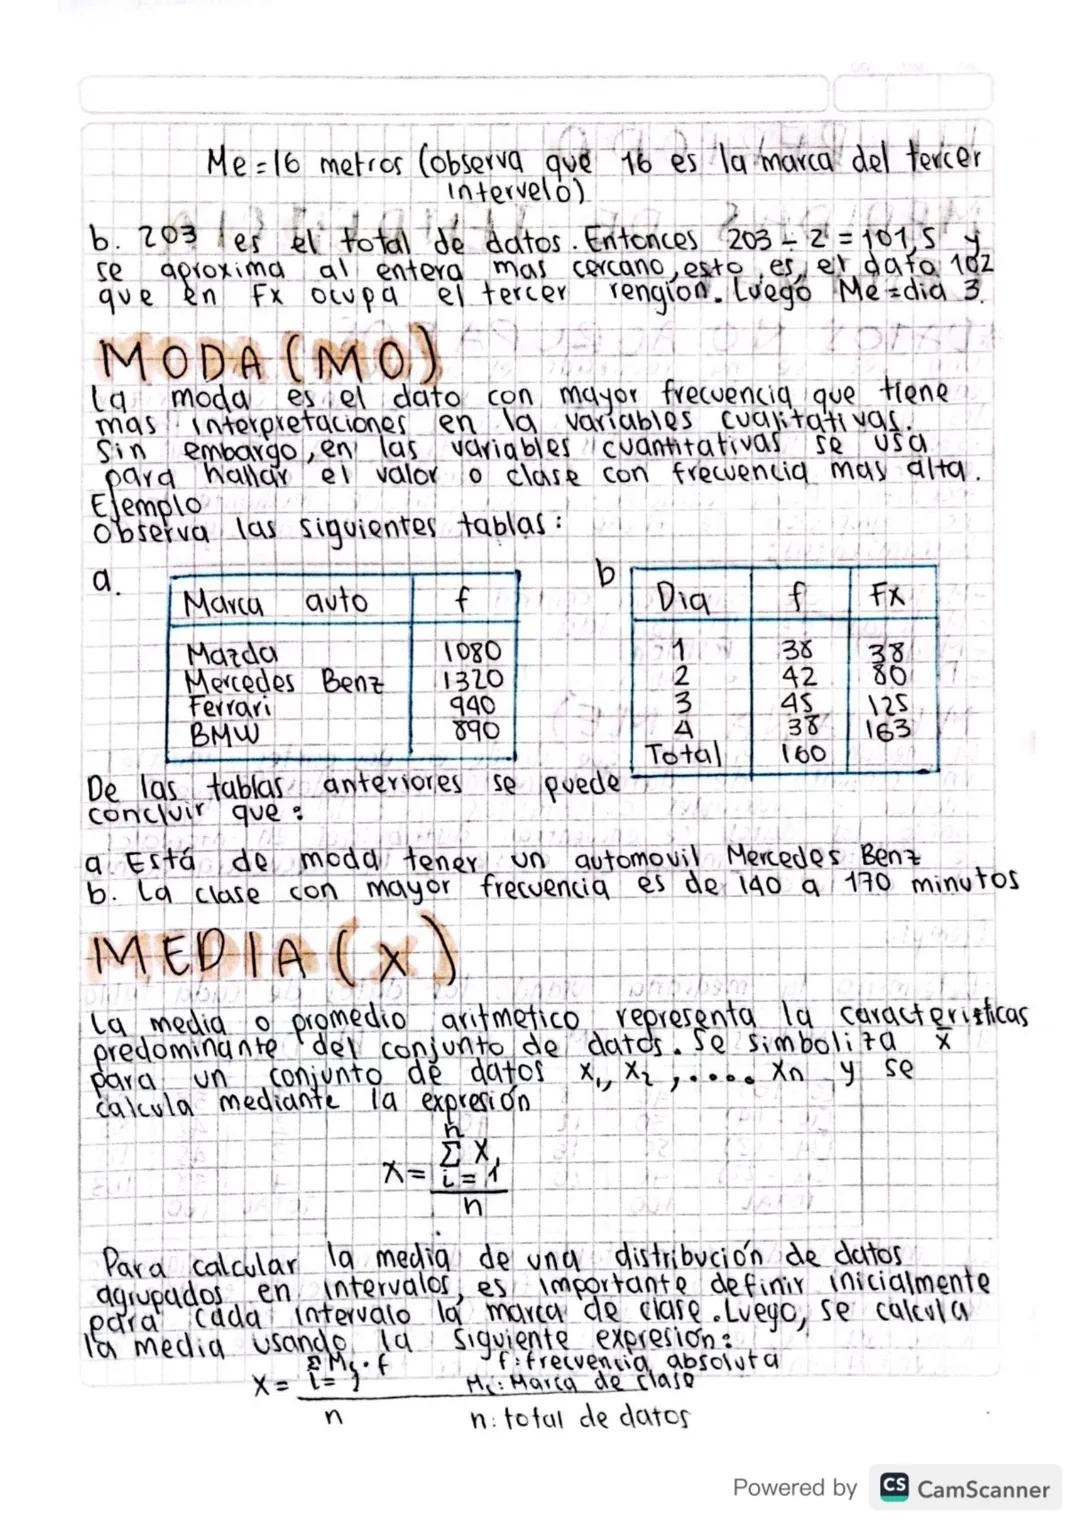 Me=16 metros (observa que 16 es la marca del tercer
intervelo)
b. 203 es el total de datos. Entonces 203 ÷ 2 = 101,5 y
se aproxima al entera mas cercano, esto es, el dato 102
que en Fx ocupa el tercer rengion. Luego Me=dia 3.
MODA (MO)
La moda es el dato con mayor frecuencia que tiene
mas interpretaciones en la variables cualitativas.
Sin embargo, en las variables cuantitativas se usa
para hallar el valor o clase con frecuencia mas alta.
Ejemplo
Observa las siguientes tablas:
a.
Marca auto f
Mazda 1080
Mercedes Benz 1320
Ferrari 940
BMW 890
b
Dia f FX
1 38 38
2 42 80
3 45 125
4 38 163
Total 160
De las tablas anteriores se puede
concluir que:
a Está de moda tener un automovil Mercedes Benz
b. La clase con mayor frecuencia es de 140 a 170 minutos
MEDIA (x)
La media o promedio aritmetico representa la caracteristicas
predominante del conjunto de datos. Se simboliza x̄
para un conjunto de datos X₁, X₂, .... Xn y se
calcula mediante la expresión
n
Σ X₁
X= i=1
n
Para calcular la media de una distribución de datos
agrupados en intervalos, es importante definir inicialmente
para cada intervalo la marca de clase. Luego, se calcula
la media usando la siguiente expresión:
Σ Mc·f f: frecuencia absoluta
X= i=1 Mc: Marca de clase
n n: total de datos
Powered by CS CamScanner